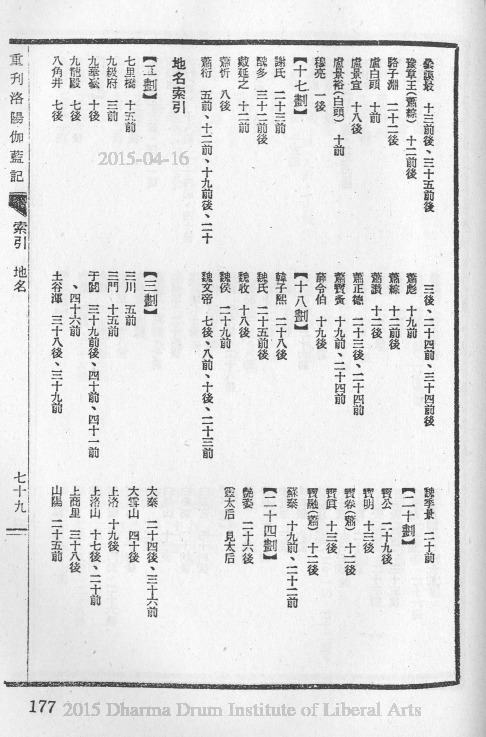 曇謨最　十三前後、三十五前後
豫章王(蕭綜)　十二前後
路子淵　二十二後
盧白頭　十前
盧景宣　十八後
盧景裕(白頭)　十前
穆亮　一後
【十七劃】
謝氏　二十三前
魏多　三十二前後
戴延之　十二前
蕭忻　八後
蕭衍　五前、十二前、十九前後、二十
三後、二十四前、三十四前後
蕭彪　十九前
蕭綜　十二前後
蕭讚　十二後
蕭正德　二十三後、二十四前
蕭寶夤　十九前、二十四前
薛令伯　十九後
【十八劃】
韓子熙　二十八後
魏氏　二十五前後
魏收　十八後
魏侯　二十九前
魏文帝　七後、八前、十後、二十三前
魏季景　二十前
【二十劃】
寶公　二十九後
寶明　十三後
寶卷(蕭)　十二後
寶眞　十三後
寶融(蕭)　十二後
蘇秦　十九前、二十二前
【二十四劃】
艷姿　二十六後
靈太后　見太后
地名索引
【二劃】
七里橋　十五前
九級府　三前
九華臺　十後
九龍殿　七後
八角井　七後
【三劃】
三川　五前
三門　十五前
于闐　三十九前後、四十前、四十一前
、四十六前
土谷渾　三十八後、三十九前
大秦　二十四後、三十六前
大雪山　四十後
上洛　十九後
上洛山　十七後、二十前
上商里　三十八後
山陽　二十五前
重刊洛陽伽藍記　索引　地名　七十九
2015-04-16
177 2015 Dharma Drum Institute of Liberal Arts